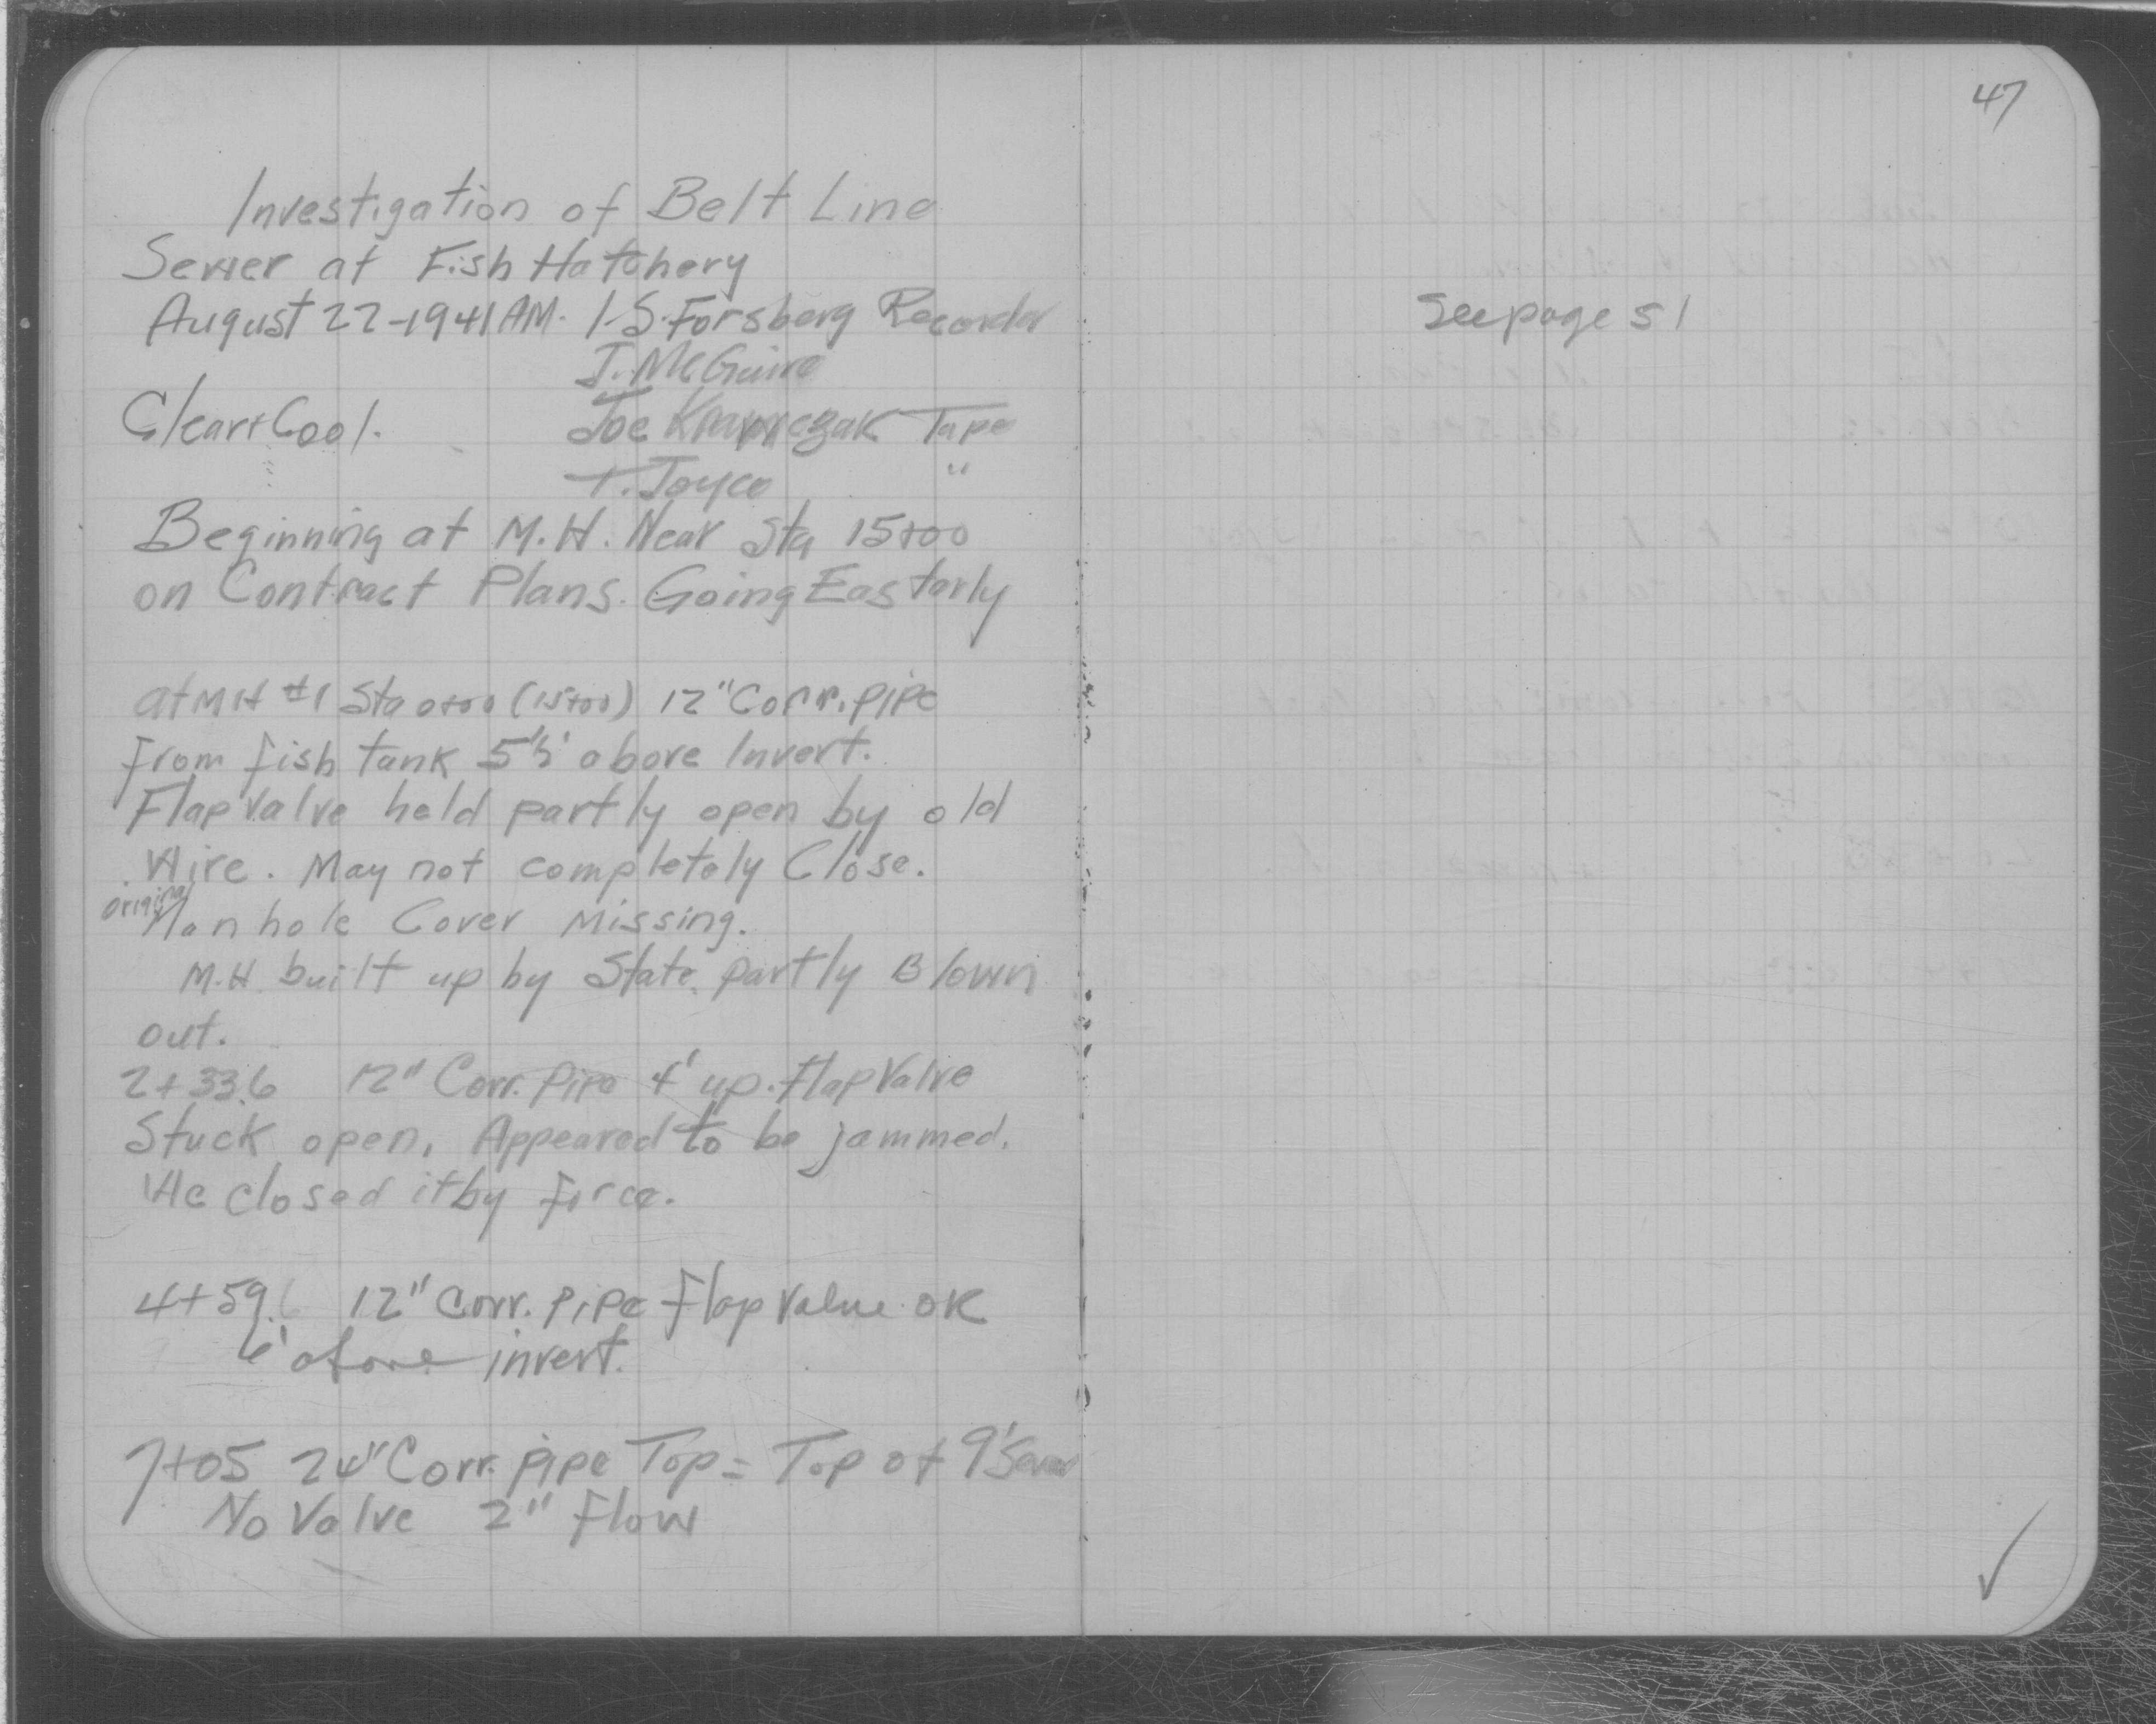 47
Investigation of Belt Line
Sewer at Fish Hatchery
August 22-1941 AM. I.S. Forsberg Recorder
J. McGuire
Clear + Cool. Joe Krawczak Tape
T. Joyce "
Beginning at M.H. Near Sta 15+00
on Contract Plans. Going Easterly
at MH #1 Sta 0+00 (15+00) 12" Corr. pipe
from fish tank above Invert.
Flap Valve held partly open by old
Wire. May not completely Close.
original
Manhole Cover Missing.
M.H. built up by State partly Blown
out.
2+33.6 12" Corr. Pipe 4' up. Flap Valve
Stuck open, Appeared to be jammed.
We closed it by force.
4+59.6 12" Corr. Pipe Flap Valve OK
6' above invert.
7+05 24" Corr. pipe Top = Top of 9' Sewer
No Valve 2" flow
See page 51